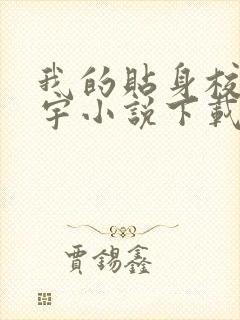 我的貼身校
宇小說下載
賈錫鑫